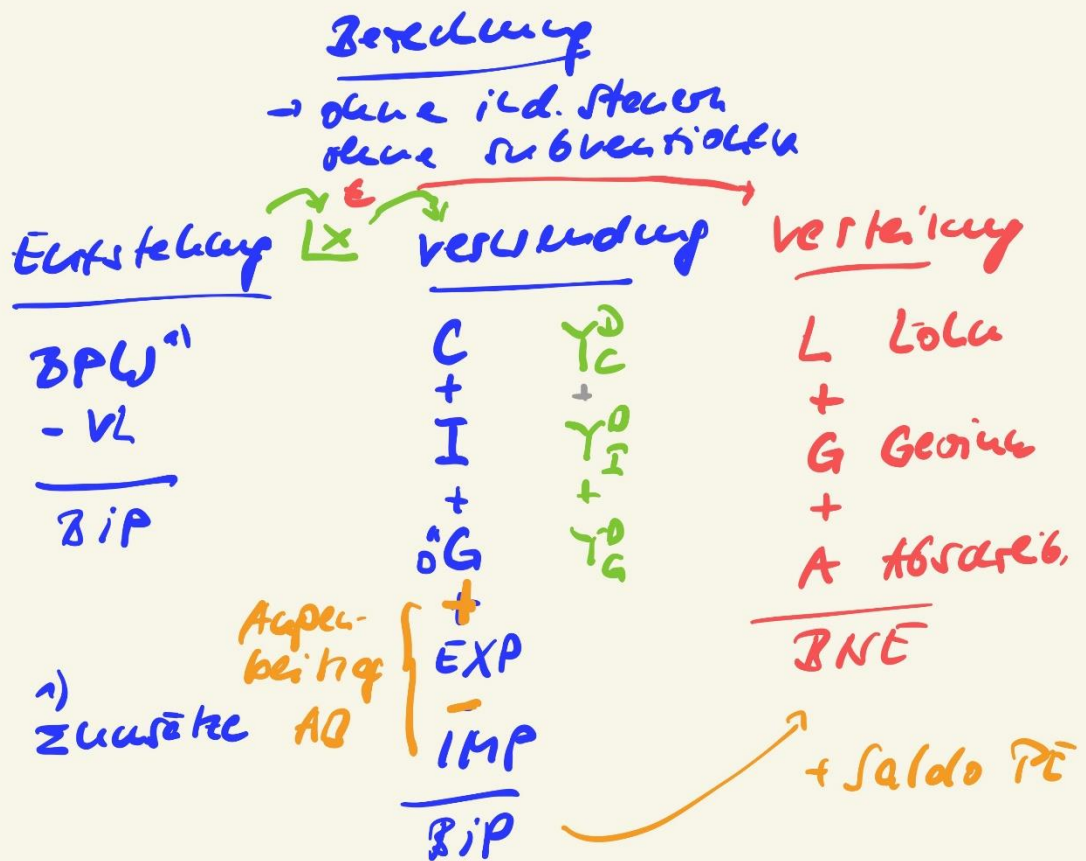 Berechnung
→ ohne ind. Steuern
ohne Subventionen
Entstehung
BPW 1)
- VL
BiP
1)
Σ Umsätze
€
X
Verwendung
C
+
I
+
G
+
EXP
-
IMP
BiP
Außen-
beitrag
AB
Y D C
+
Y D I
+
Y D G
Verteilung
L Löhne
+
G Gewinne
+
A Abschreib.
BNE
+ Saldo PE